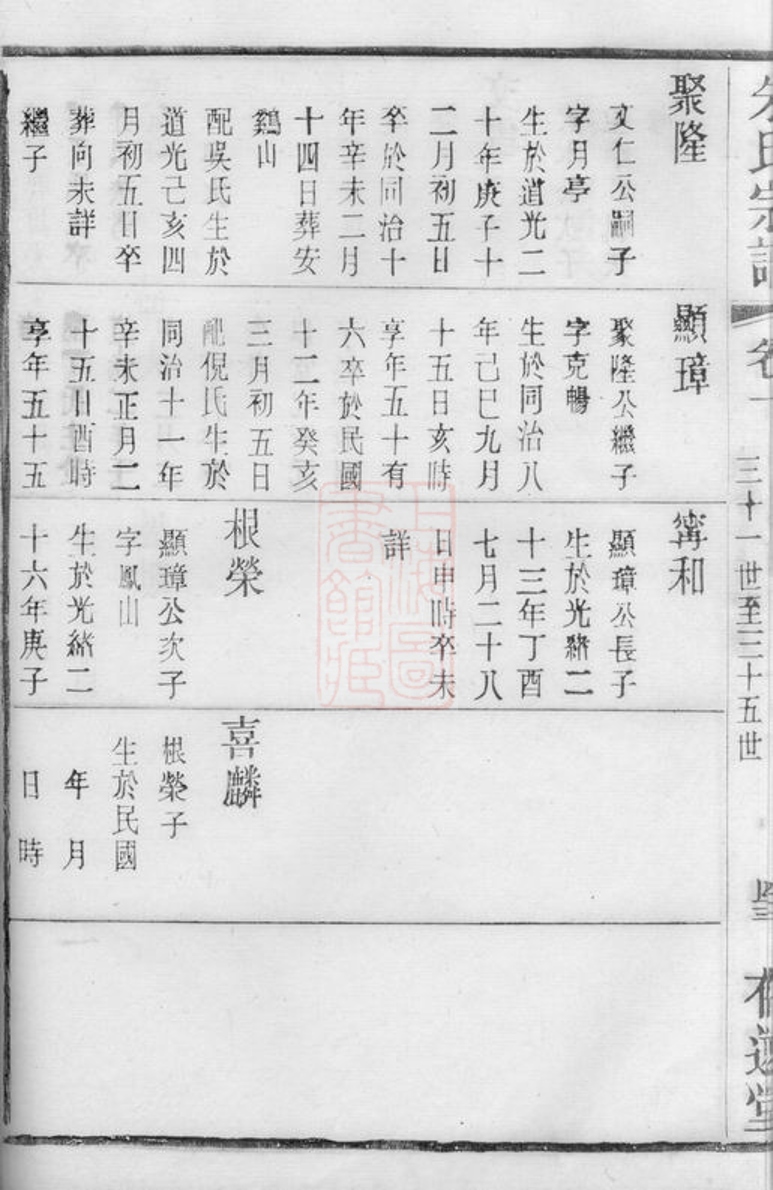 朱氏宗譜
卷一
三十一世至三十五世
聚隆
文仁公嗣子
字月亭
生於道光二
十年庚子十
二月初五日
卒於同治十
年辛未二月
十四日葬安
鷄山
配吳氏生於
道光己亥四
月初五日卒
葬向未詳
繼子
顯璋
聚隆公繼子
字克暢
生於同治八
年己巳九月
十五日亥時
享年五十有
六卒於民國
十二年癸亥
三月初五日
配倪氏生於
同治十一年
辛未正月二
十五日酉時
享年五十五
甯和
顯璋公長子
生於光緒二
十三年丁酉
七月二十八
日申時卒未
詳
根榮
顯璋公次子
字鳳山
生於光緒二
十六年庚子
喜麟
根榮子
生於民國
年 月
日 時
上海圖
書館藏